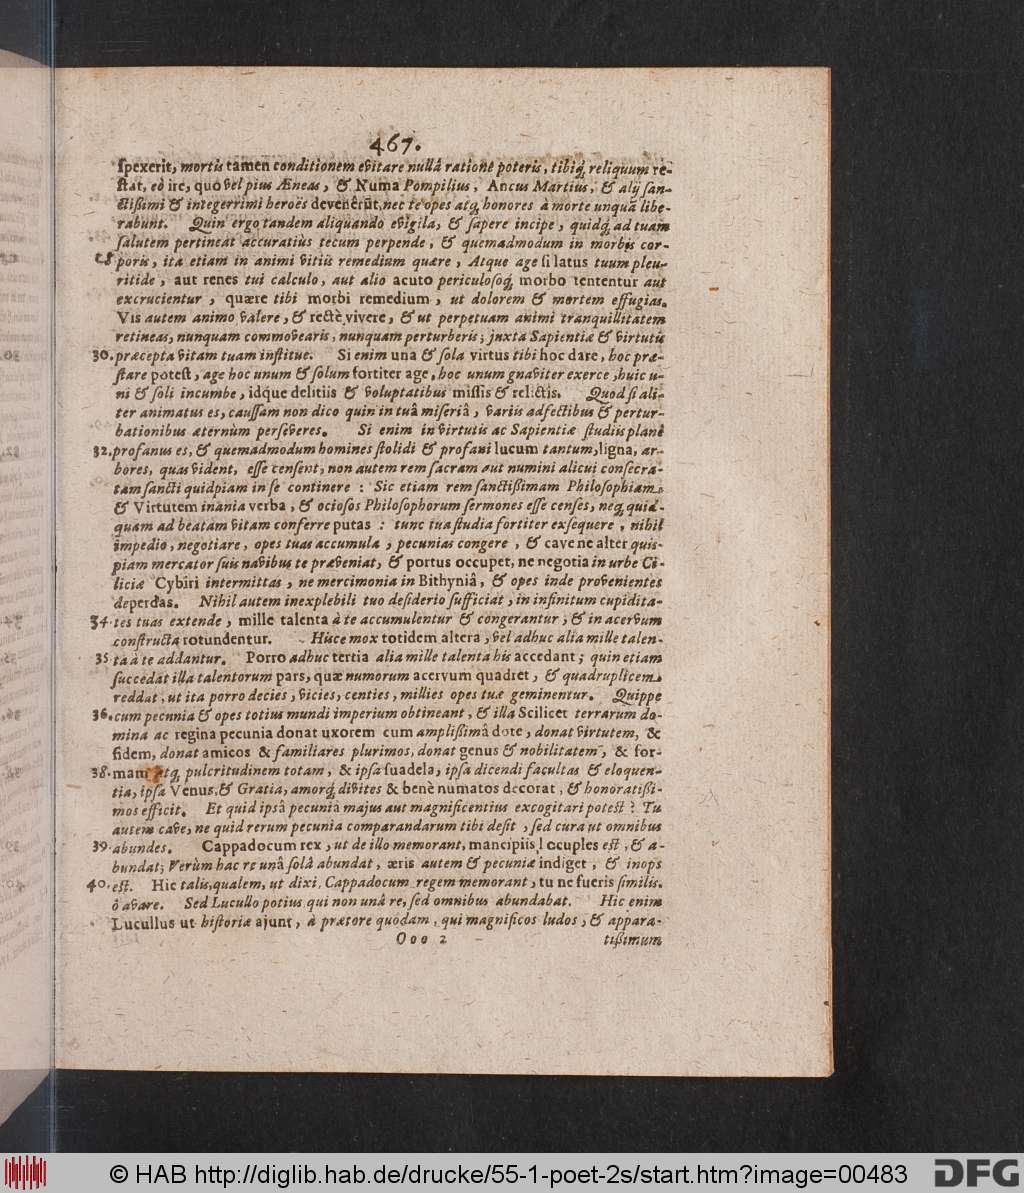 467.
spexerit, mortis tamen conditionem evitare nullâ ratione poteris, tibiq́ reliquum re-
stat, eò ire, quò vel pius Æneas, & Numa Pompilius, Ancus Martius, & alij san-
ctißimi & integerrimi heroës devenerũt, nec te opes atq́ honores à morte unquã libe-
rabunt. Quin ergo tandem aliquando evigila, & sapere incipe, quidq́ ad tuam
salutem pertineat accuratiùs tecum perpende, & quemadmodum in morbis cor-
28 poris, ita etiam in animi vitiis remedium quære, Atque age si latus tuum pleu-
ritide, aut renes tui calculo, aut alio acuto periculosoq́ morbo tententur aut
excrucientur, quære tibi morbi remedium, ut dolorem & mortem effugias.
Vis autem animo valere, & rectè vivere, & ut perpetuam animi tranquillitatem
retineas, nunquam commovearis, nunquam perturberis; juxta Sapientiæ & virtutis
30. præcepta vitam tuam institue. Si enim una & sola virtus tibi hoc dare, hoc præ-
stare potest, age hoc unum & solum fortiter age, hoc unum gnaviter exerce, huic u-
ni & soli incumbe, idque delitiis & voluptatibus missis & relictis. Quod si ali-
ter animatus es, caussam non dico quin in tuâ miseriâ, variis adfectibus & pertur-
bationibus æternùm perseveres. Si enim in virtutis ac Sapientiæ studiis planè
32. profanus es, & quemadmodum homines stolidi & profani lucum tantum, ligna, ar-
bores, quas vident, esse censent, non autem rem sacram aut numini alicui consecra-
tam sancti quidpiam in se continere : Sic etiam rem sanctißimam Philosophiam
& Virtutem inania verba, & ociosos Philosophorum sermones esse censes, neq́ quid-
quam ad beatam vitam conferre putas : tunc tua studia fortiter exsequere, nihil
impedio, negotiare, opes tuas accumula, pecunias congere, & cave ne alter quis-
piam mercator suis navibus te præveniat, & portus occupet, ne negotia in urbe Ci-
liciæ Cybiri intermittas, ne mercimonia in Bithyniâ, & opes inde provenientes
deperdas. Nihil autem inexplebili tuo desiderio sufficiat, in infinitum cupidita-
34. tes tuas extende, mille talenta à te accumulentur & congerantur, & in acervum
constructa rotundentur. Hisce mox totidem altera, vel adhuc alia mille talen-
35 ta à te addantur. Porro adhuc tertia alia mille talenta his accedant; quin etiam
succedat illa talentorum pars, quæ numorum acervum quadret, & quadruplicem
reddat, ut ita porro decies, vicies, centies, millies opes tuæ geminentur. Quippe
36. cum pecunia & opes totius mundi imperium obtineant, & illa Scilicet terrarum do-
mina ac regina pecunia donat uxorem cum amplißimâ dote, donat virtutem, &
fidem, donat amicos & familiares plurimos, donat genus & nobilitatem, & for-
38. mam atq́ pulcritudinem totam, & ipsa suadela, ipsa dicendi facultas & eloquen-
tia, ipsa Venus, & Gratia, amorq́ divites & benè numatos decorat, & honoratißi-
mos efficit. Et quid ipsâ pecuniâ majus aut magnificentius excogitari potest? Tu
autem cave, ne quid rerum pecunia comparandarum tibi desit, sed cura ut omnibus
39. abundes. Cappadocum rex, ut de illo memorant, mancipiis locuples est, & a-
bundat; Verùm hac re unâ solâ abundat, æris autem & pecuniæ indiget, & inops
40. est. Hic talis, qualem, ut dixi, Cappadocum regem memorant, tu ne fueris similis,
ô avare. Sed Lucullo potius qui non unâ re, sed omnibus abundabat. Hic enim
Lucullus ut historiæ ajunt, à prætore quodam, qui magnificos ludos, & appara-
Ooo 2 tißimum
© HAB http://diglib.hab.de/drucke/55-1-poet-2s/start.htm?image=00483 DFG